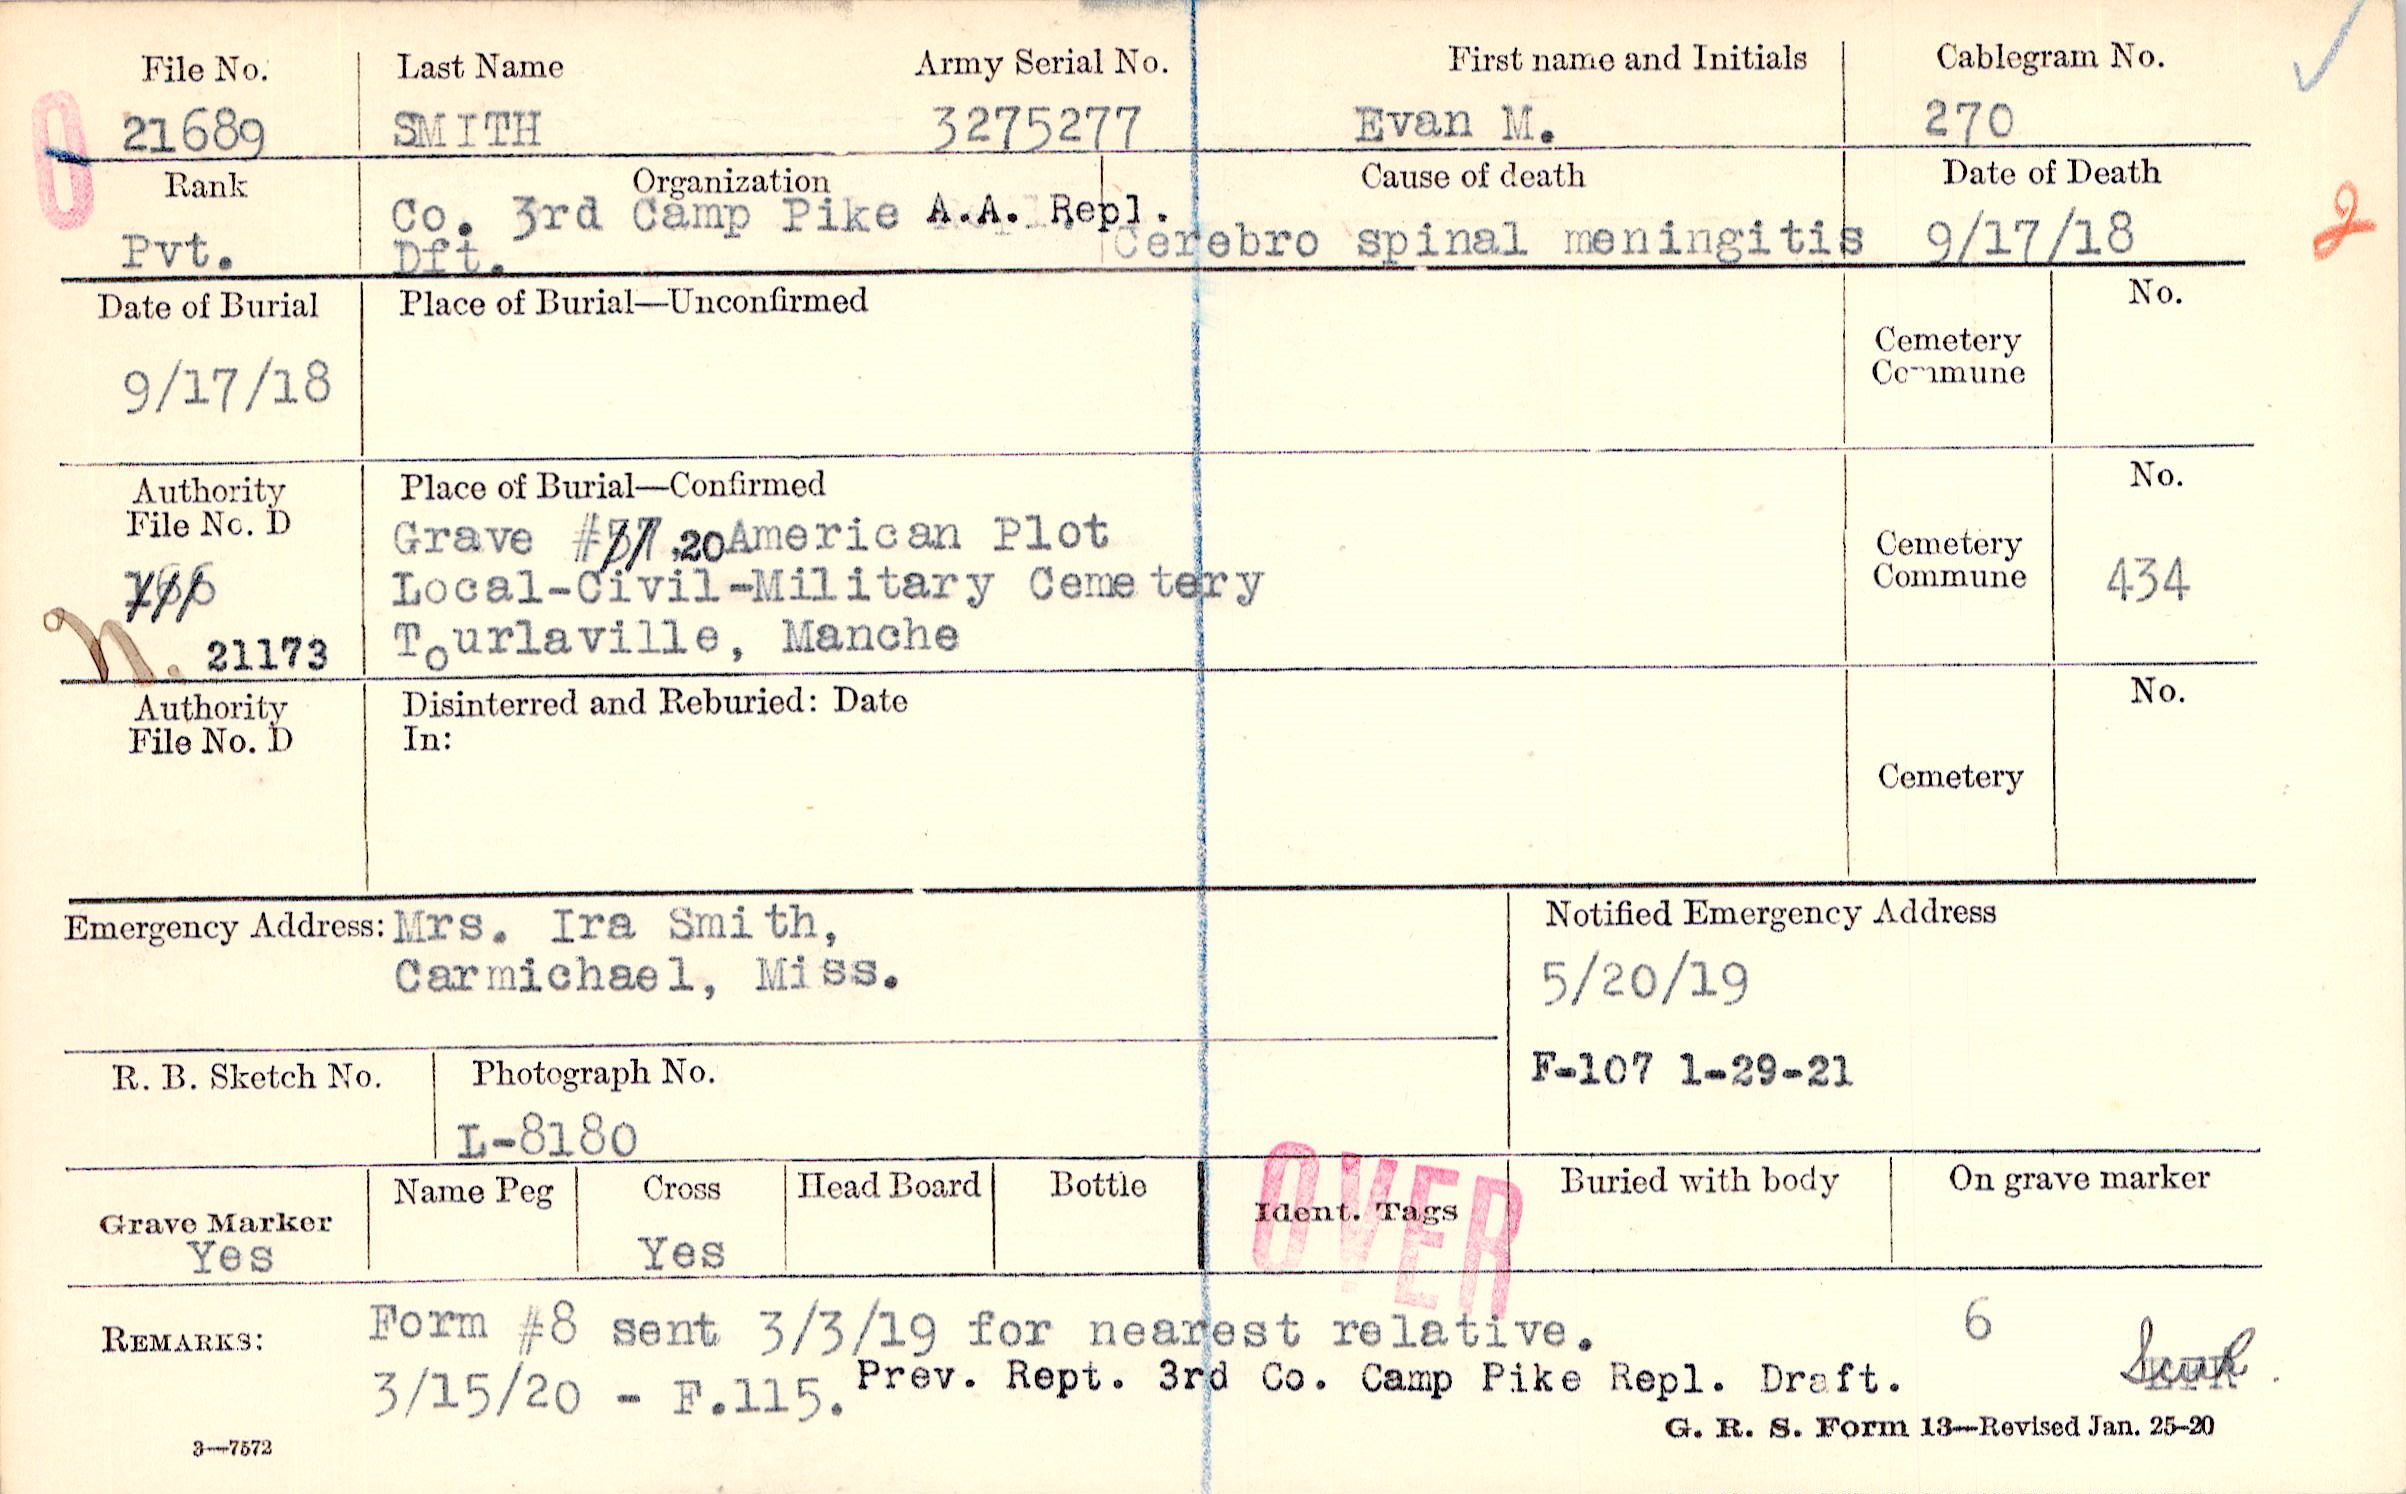 File No.
Last Name
Army Serial No.
First name and Initials
Cablegram No.
21689
SMITH
3275277
Evan M.
270
Rank
Organization
Cause of death
Date of Death
Pvt.
Co. 3rd Camp Pike A.A. Repl.
Dft.
Cerebro spinal meningitis
9/17/18
Date of Burial
Place of Burial—Unconfirmed
No.
9/17/18
Cemetery
Commune
Authority
File No. D
Place of Burial—Confirmed
No.
Grave #37 20 American Plot
Local-Civil-Military Cemetery
Tourlaville, Manche
166
N. 21173
Cemetery
Commune
434
Authority
File No. D
Disinterred and Reburied: Date
In:
No.
Cemetery
Emergency Address: Mrs. Ira Smith,
Carmichael, Miss.
Notified Emergency Address
5/20/19
F-107 1-29-21
R. B. Sketch No.
Photograph No.
L-8180
Grave Marker
Yes
Name Peg
Cross
Yes
Head Board
Bottle
Ident. Tags
OVER
Buried with body
On grave marker
REMARKS:
Form #8 sent 3/3/19 for nearest relative.
6
3/15/20 - F.115. Prev. Rept. 3rd Co. Camp Pike Repl. Draft.
G. R. S. Form 13—Revised Jan. 25-20
3—7572
0
2